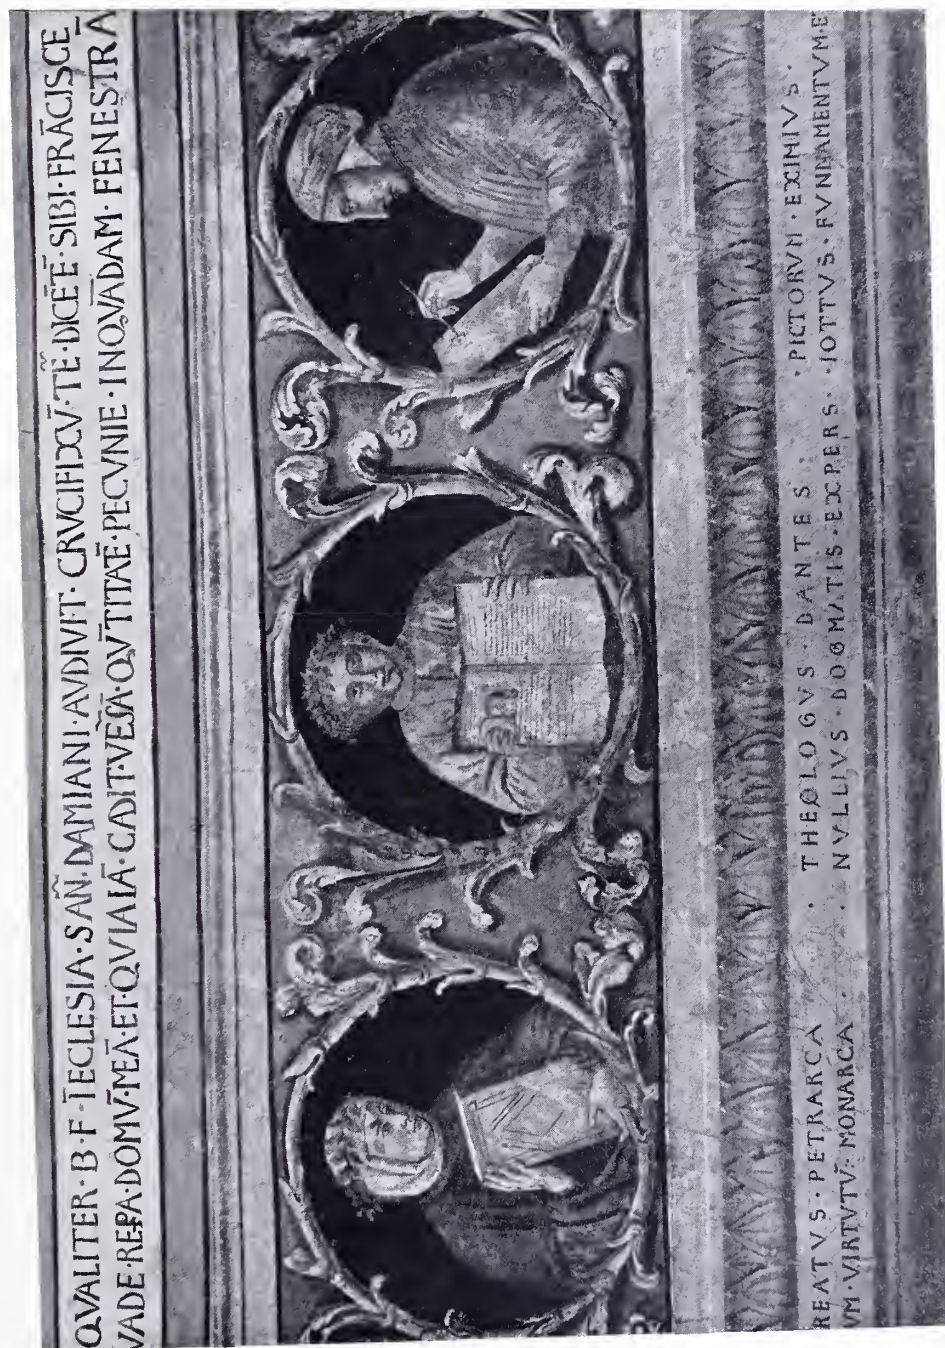 QVALITER · B · F · ĪECLESIA · SAÑ · DAMIANI · AVDIVIT · CRVCIFIXV̄ · TE · DICĒTĒ · SIBI · FRĀCISCE
VADE · REPA · DOMV̄ · MEĀ · ET · QVIA IĀ · CADIT · VĒSĀ · QV̄TITATĒ · PECVNIE · INQVĀDAM · FENESTRĀ
REATVS · PETRARCA · THEOLOGVS · DANTES · PICTORVM · EXIMIVS ·
VM · VIRTVTV̄ · MONARCA · NVLLIVS · DOGMATIS · EXPERS · IOTTVS · FVNDAMENTVM · E